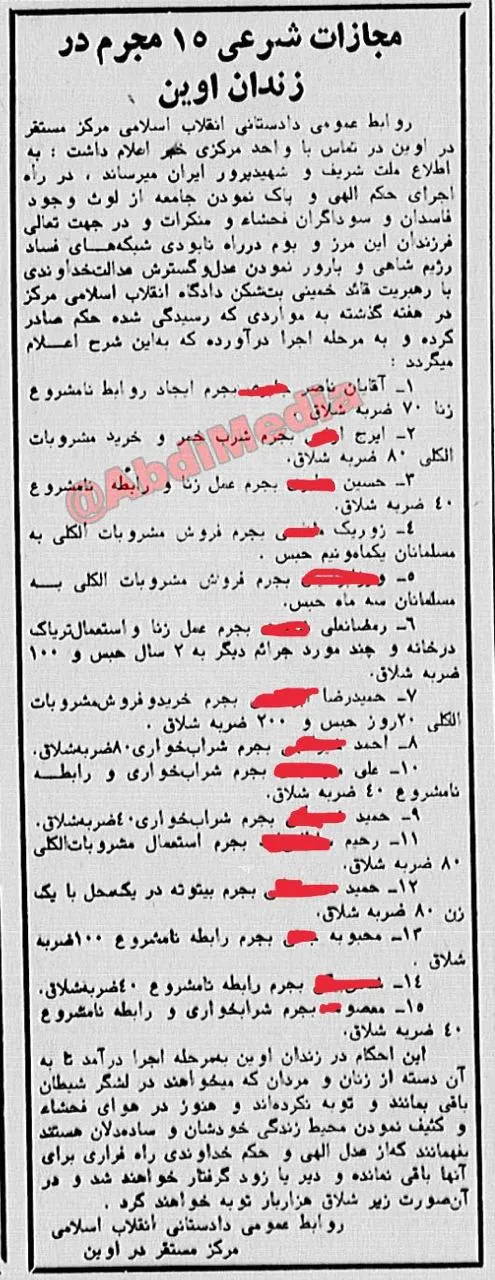 مجازات شرعی ۱۵ مجرم در
زندان اوین
روابط عمومی دادستانی انقلاب اسلامی مرکز مستقر
در اوین در تماس با واحد مرکزی خبر اعلام داشت : به
اطلاع ملت شریف و شهیدپرور ایران میرساند ، در راه
اجرای حکم الهی و پاک نمودن جامعه از لوث وجود
فاسدان و سوداگران فحشاء و منکرات و در جهت تعالی
فرزندان این مرز و بوم درراه نابودی شبکه‌های فساد
رژیم شاهی و بارور نمودن عدل‌وگسترش عدالت‌خداوندی
با رهبریت قائد خمینی بت‌شکن دادگاه انقلاب اسلامی مرکز
در هفته گذشته به مواردی که رسیدگی شده حکم صادر
کرده و به مرحله اجرا درآورده که به‌این شرح اعلام
میگردد :
۱ـ آقایان ناصر بجرم ایجاد روابط نامشروع
زنا ۷۰ ضربه شلاق.
@AbdiMedia
۲ـ ایرج بجرم شرب خمر و خرید مشروبات
الکلی ۸۰ ضربه شلاق.
۳ـ حسین بجرم عمل زنا و رابطه نامشروع
۴۰ ضربه شلاق.
۴ـ زوریک بجرم فروش مشروبات الکلی به
مسلمانان یکماه‌ونیم حبس .
۵ـ بجرم فروش مشروبات الکلی به
مسلمانان سه ماه حبس.
۶ـ رمضانعلی بجرم عمل زنا و استعمال‌تریاک
درخانه و چند مورد جرائم دیگر به ۲ سال حبس و ۱۰۰
ضربه شلاق.
۷ـ حمیدرضا بجرم خریدوفروش‌مشروبات
الکلی ۲۰روز حبس و ۲۰۰ ضربه شلاق .
۸ـ احمد بجرم شراب‌خواری۸۰ضربه‌شلاق.
۱۰ـ علی بجرم شراب‌خواری و رابطه
نامشروع ۴۰ ضربه شلاق.
۹ـ حمید بجرم شراب‌خواری۴۰ضربه‌شلاق.
۱۱ـ رحیم بجرم استعمال مشروبات‌الکلی
۸۰ ضربه شلاق.
۱۲ـ حمید بجرم بیتوته در یک‌محل با یک
زن ۸۰ ضربه شلاق.
۱۳ـ محبوبه بجرم رابطه نامشروع ۱۰۰ضربه
شلاق .
۱۴ـ بجرم رابطه نامشروع ۴۰ضربه‌شلاق.
۱۵ـ معصو بجرم شرابخواری و رابطه نامشروع
۴۰ ضربه شلاق.
این احکام در زندان اوین به‌مرحله اجرا درآمد تا به
آن دسته از زنان و مردان که میخواهند در لشگر شیطان
باقی بمانند و توبه نکرده‌اند و هنوز در هوای فحشاء
و کثیف نمودن محیط زندگی خودشان و ساده‌دلان هستند
بفهمانند که‌از عدل الهی و حکم خداوندی راه فراری برای
آنها باقی نمانده و دیر یا زود گرفتار خواهند شد و در
آن‌صورت زیر شلاق هزاربار توبه خواهند کرد .
روابط عمومی دادستانی انقلاب اسلامی
مرکز مستقر در اوین